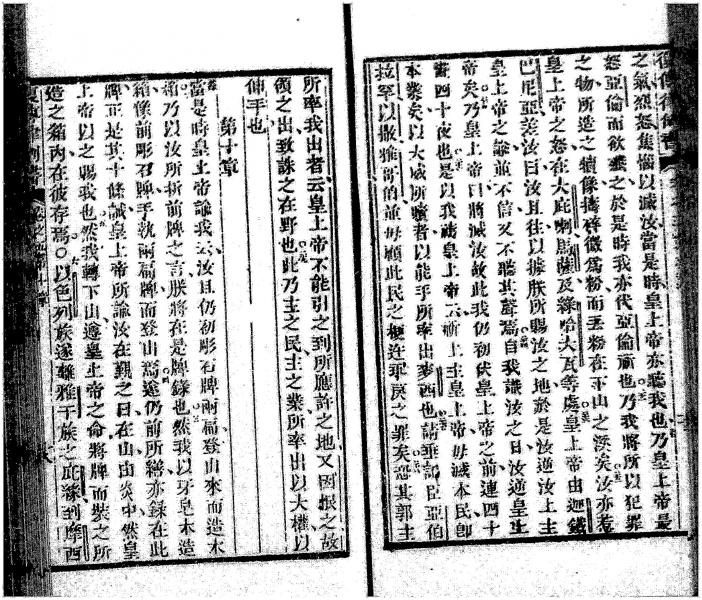 復傳律例書
之氣忿怒集惱以滅汝當是時皇上帝亦聽我也乃皇上帝最
怒亞倫而欲滅之於是時我亦代亞倫祈也乃我將所以犯罪
之物所造之犢像擣碎微爲粉而丟粉在下山之溪矣汝亦惹
皇上帝之怒在大庇喇馬薩及綠哈大瓦等處皇上帝由迦鐵
巴尼亞差汝曰汝且往以據朕所賜汝之地於是汝逆汝上主
皇上帝之諭並不信又不聽其聲焉自我識汝之日汝逆皇上
帝矣乃皇上帝曰將滅汝故此我仍初伏皇上帝之前連四十
晝四十夜也是以我禱皇上帝云祈上主皇上帝毋滅本民卽
本業矣以大威所贖者以能手所率出麥西也請垂記臣亞伯
拉罕以撒雅哥伯並毋顧此民之梗迕戾之罪矣恐其郭主
所率我出者云皇上帝不能引之到所應許之地又因恨之故
領之出致誅之在野也此乃主之民主之業所率出以大權以
伸手也
第十章
當是時皇上帝諭我云汝且仍初彫石牌兩幅登山來而造木
箱乃以汝所折前牌之言朕將在是牌錄也然我以牙皂木造
箱像前彫石牌手執兩幅牌而登山焉遂仍前所繕亦錄在此
牌正是其十條誡皇上帝所諭汝在覲之日在山由炎中然皇
上帝以之賜我也然我轉下山遵皇上帝之命將牌而裝之所
造之箱內在彼存焉○以色列族遂離雅干族之庇綠到摩西